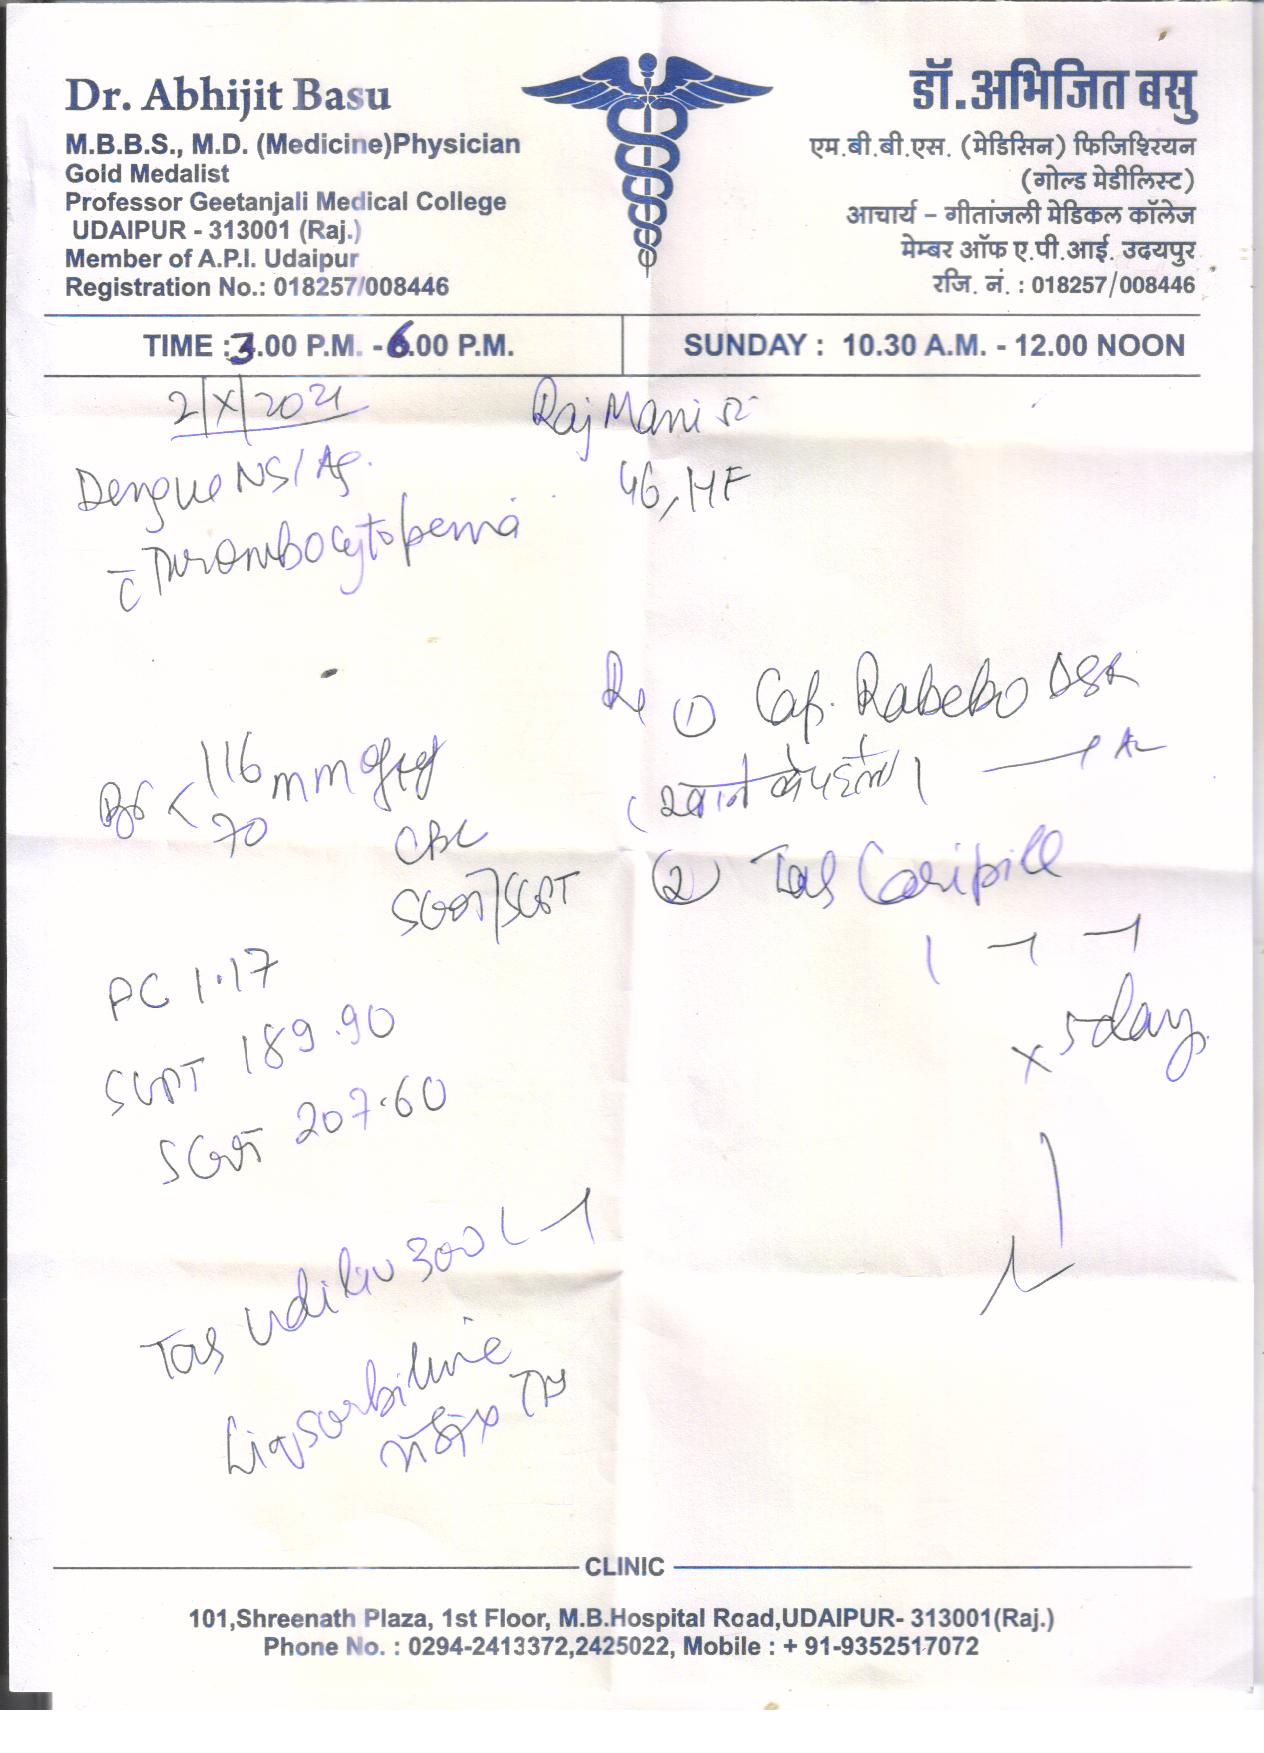 Dr. Abhijit Basu
M.B.B.S., M.D. (Medicine)Physician
Gold Medalist
Professor Geetanjali Medical College
UDAIPUR - 313001 (Raj.)
Member of A.P.I. Udaipur
Registration No.: 018257/008446
डॉ.अभिजित बसु
एम.बी.बी.एस. (मेडिसिन) फिजिश्यिन
(गोल्ड मेडीलिस्ट)
आचार्य - गीतांजली मेडिकल कॉलेज
मेम्बर ऑफ ए.पी.आई. उदयपुर
रजि. नं. : 018257/008446
TIME :3.00 P.M. -6.00 P.M.
SUNDAY : 10.30 A.M. - 12.00 NOON
2/X/2021
Raj Mani
46,
Dengue NS1 Ag.
c̄ Thrombocytopenia
Rx ① Cap. Rabebo DSR
② Tab Caripill
1 - 1 - 1
x 5 day
116
70 mm of Hg
CBC
SGOT/SGPT
PC 1.17
SGPT 189.90
SGOT 207.60
Tab Udiliv 300 1-1
Liq Sorbiline
CLINIC
101,Shreenath Plaza, 1st Floor, M.B.Hospital Road,UDAIPUR- 313001(Raj.)
Phone No. : 0294-2413372,2425022, Mobile : + 91-9352517072